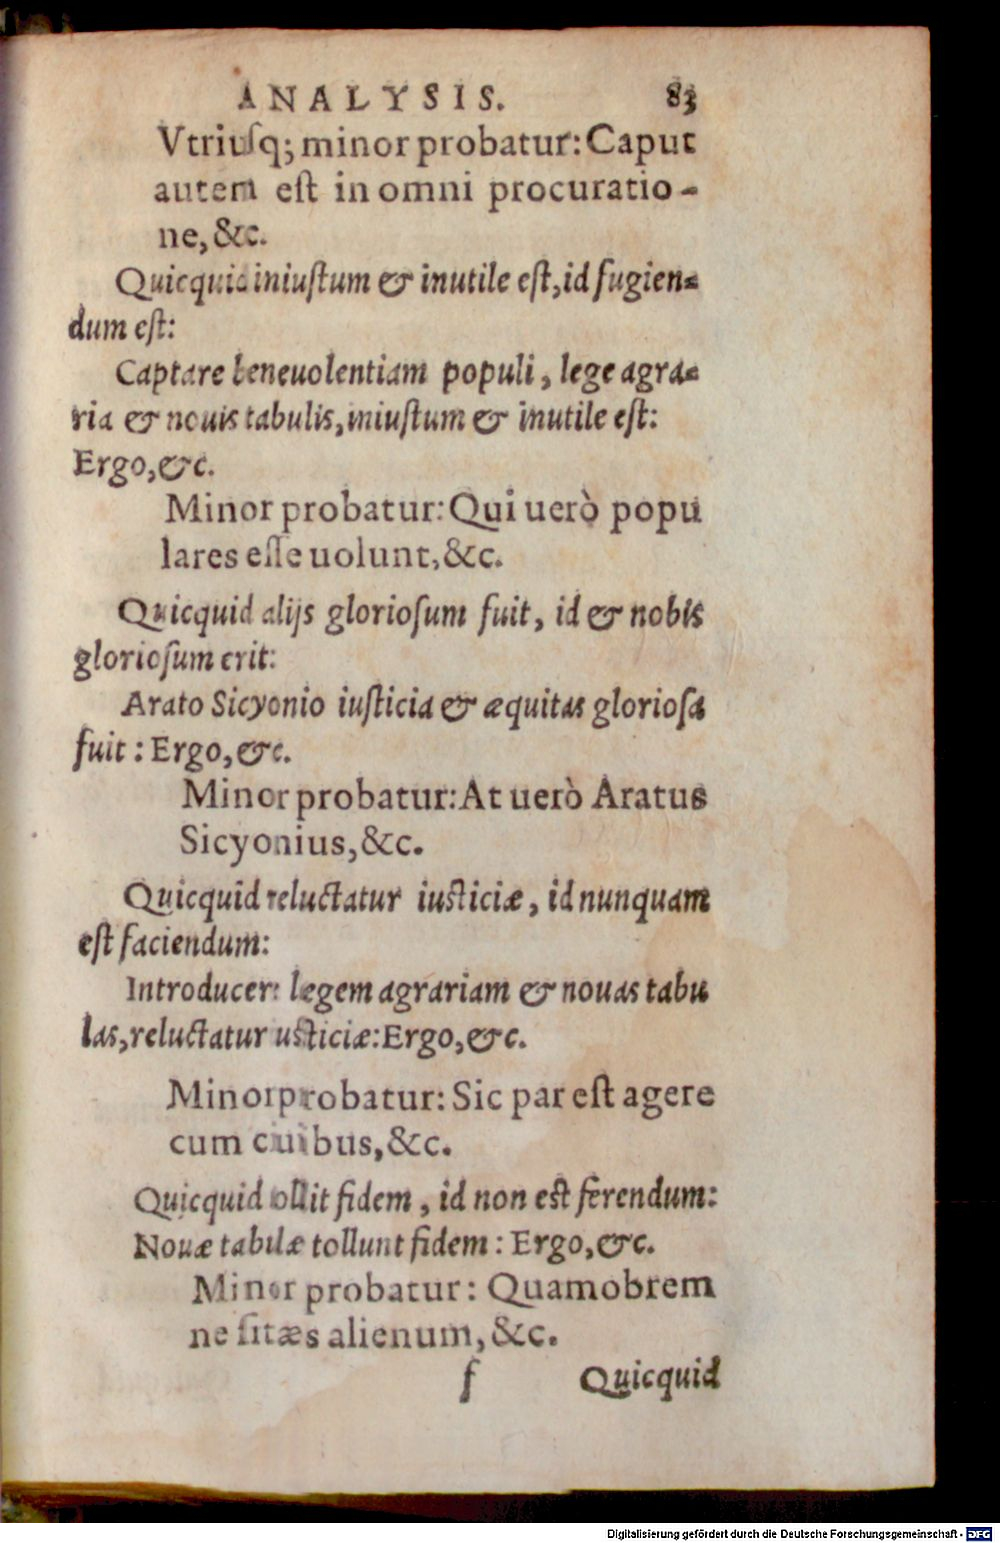 ANALYSIS. 83
Vtriuſq; minor probatur: Caput
autem eſt in omni procuratio-
ne, &c.
Quicquid iniuſtum & inutile eſt, id fugien-
dum eſt:
Captare beneuolentiam populi, lege agra-
ria & nouis tabulis, iniuſtum & inutile eſt:
Ergo, &c.
Minor probatur: Qui uerò popu
lares eſſe uolunt, &c.
Quicquid alijs glorioſum fuit, id & nobis
glorioſum erit:
Arato Sicyonio iuſticia & æquitas glorioſa
fuit: Ergo, &c.
Minor probatur: At uerò Aratus
Sicyonius, &c.
Quicquid reluctatur iuſticiæ, id nunquam
eſt faciendum:
Introducere legem agrariam & nouas tabu
las, reluctatur iuſticiæ: Ergo, &c.
Minor probatur: Sic par eſt agere
cum ciuibus, &c.
Quicquid tollit fidem, id non eſt ferendum:
Nouæ tabulæ tollunt fidem: Ergo, &c.
Minor probatur: Quamobrem
ne ſit æs alienum, &c.
f Quicquid
Digitalisierung gefördert durch die Deutsche Forschungsgemeinschaft - DFG